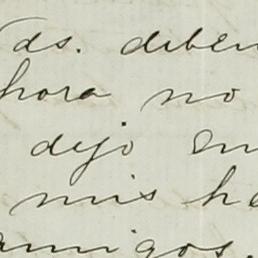 Vds. deben
hora no
dejo en
mis h
amigos.